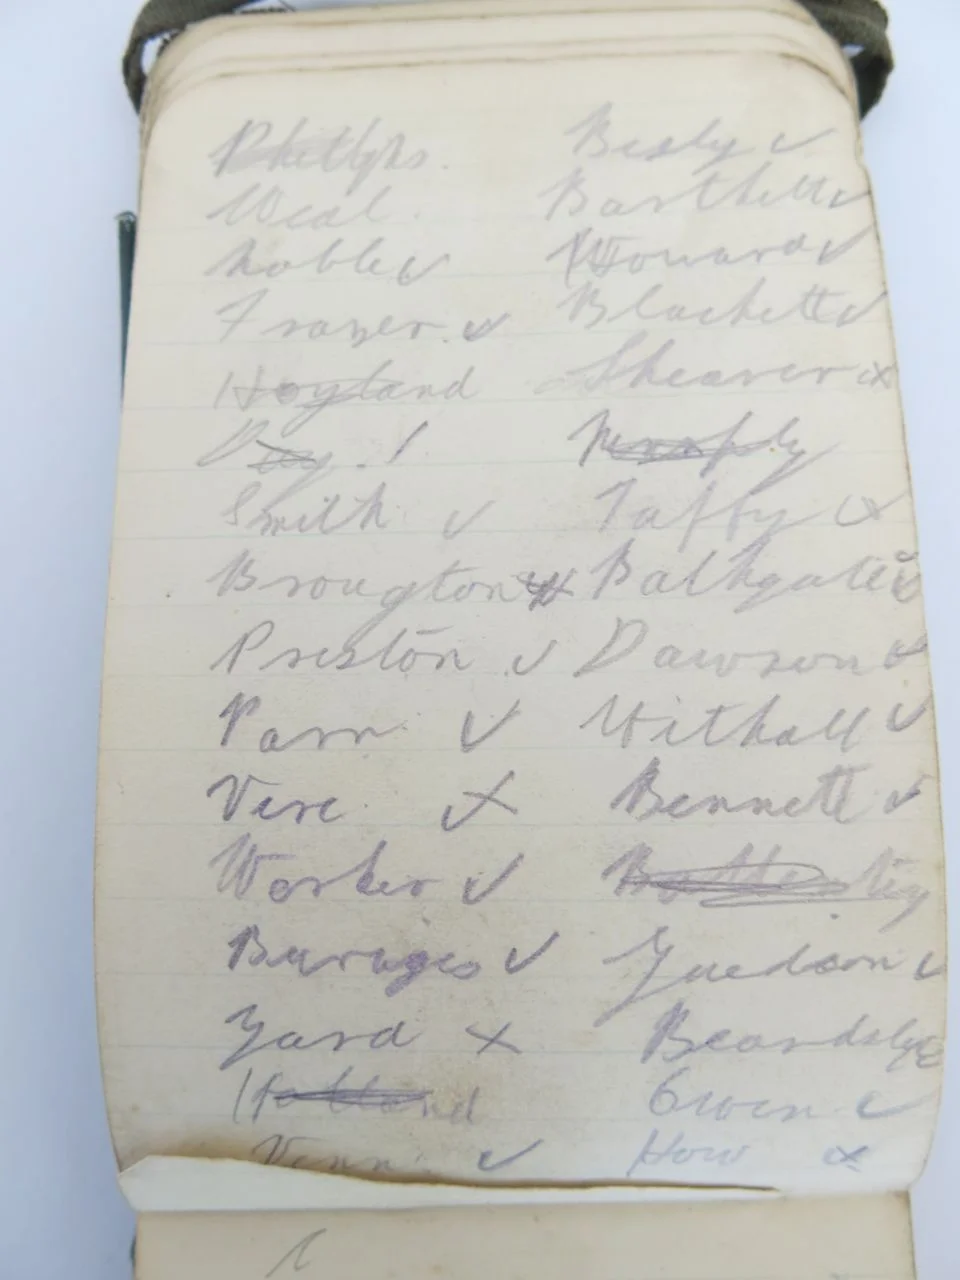 Phillips. Bexly ✓
Weal. Bartlett ✓
Noble ✓ Howard ✓
Frazer ✓ Blackett ✓
Hoyland Shearer x
Day ! Murphy
Smith ✓ Taffy x
Brougton Bathgate
Preston ✓ Dawson
Parr ✓ Withall ✓
Vere x Bennett ✓
Worker ✓
Burages ✓
Yard x Beardsly
Holland Owen ✓
Venn ✓ How x